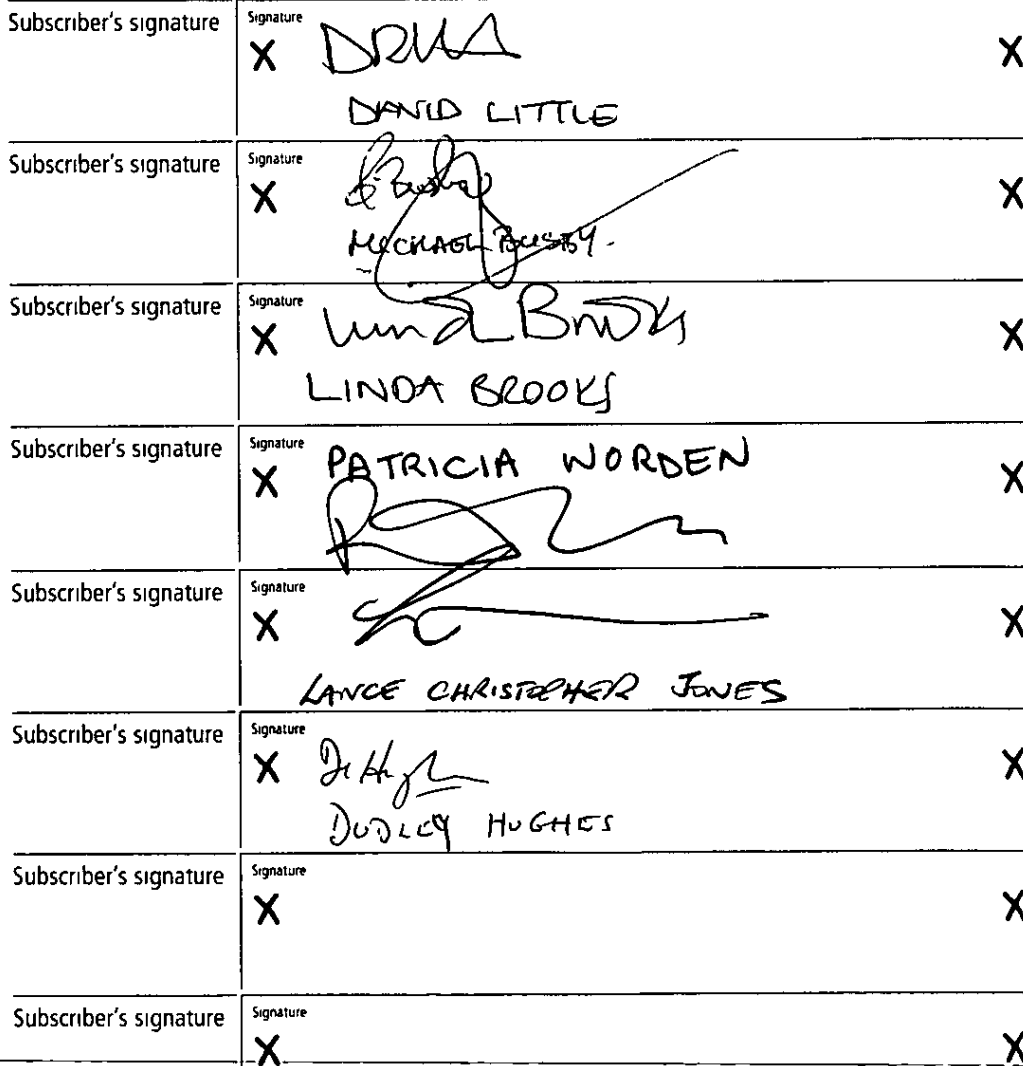 Subscriber's signature Signature
X X
DAVID LITTLE
Subscriber's signature Signature
X X
MICHAEL BUSBY.
Subscriber's signature Signature
X Linda Brooks X
LINDA BROOKS
Subscriber's signature Signature
X PATRICIA WORDEN X
Subscriber's signature Signature
X X
LANCE CHRISTOPHER JONES
Subscriber's signature Signature
X X
DUDLEY HUGHES
Subscriber's signature Signature
X X
Subscriber's signature Signature
X X